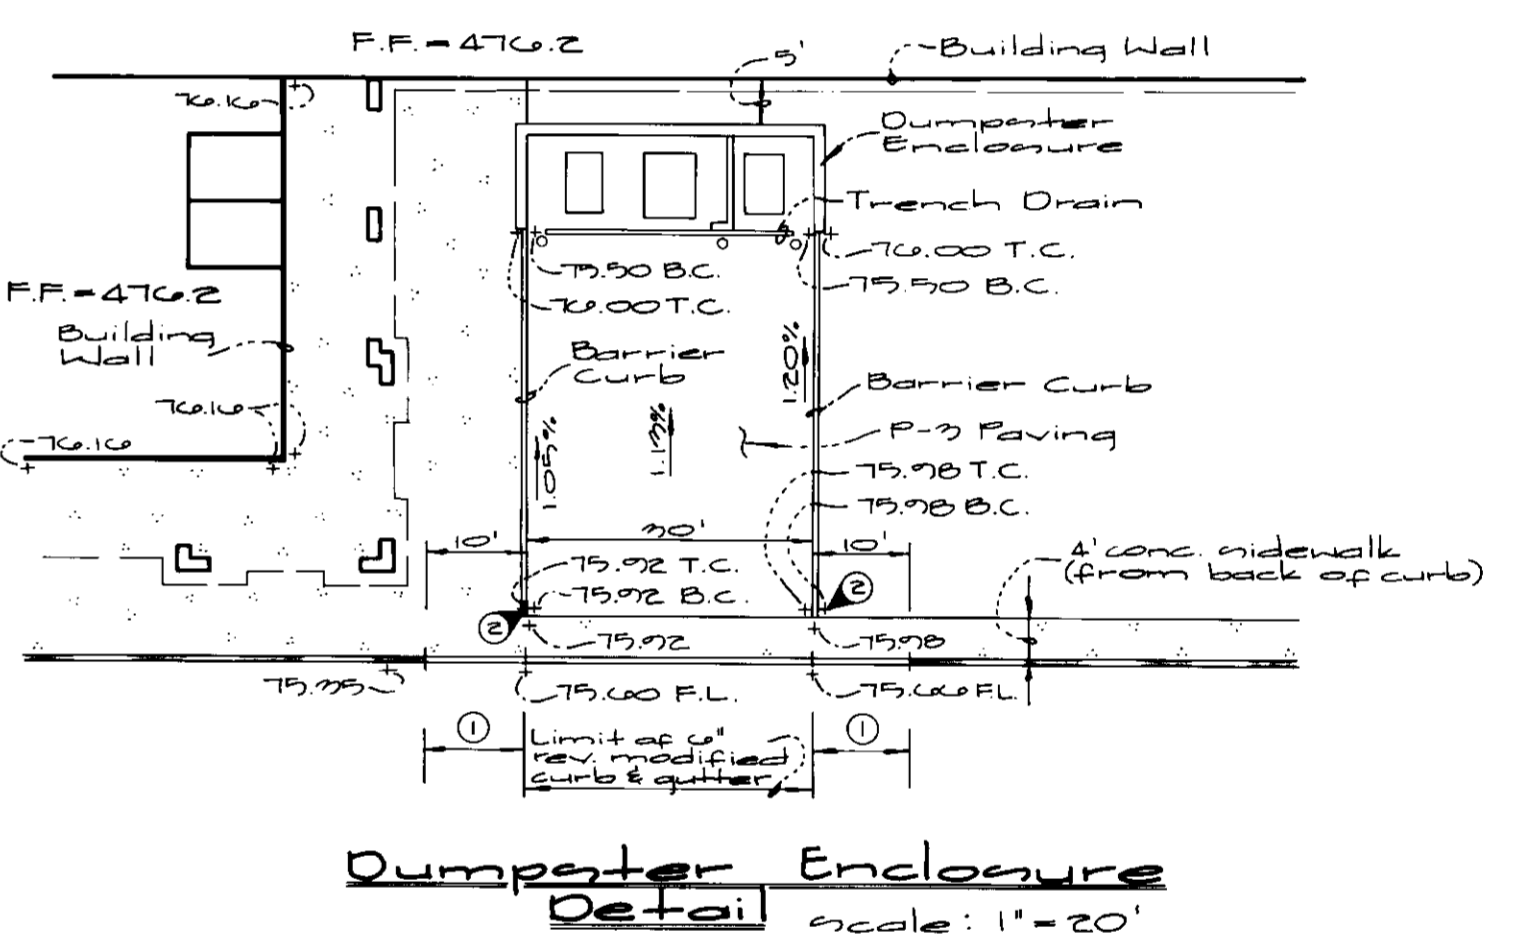 F.F.=476.2
5'
Building Wall
76.16
Dumpster
Enclosure
Trench Drain
76.00 T.C.
75.50 B.C.
75.50 B.C.
76.00 T.C.
F.F.=476.2
Building
Wall
Barrier
Curb
1.20%
Barrier Curb
76.16
76.16
1.05%
1.13%
P-3 Paving
75.98 T.C.
75.98 B.C.
10'
30'
10'
4' conc. sidewalk
(from back of curb)
75.92 T.C.
75.92 B.C.
2
2
75.92
75.98
75.35
75.60 F.L.
75.66 F.L.
1
1
Limit of 6"
rev. modified
curb & gutter
Dumpster Enclosure
Detail
scale: 1"=20'